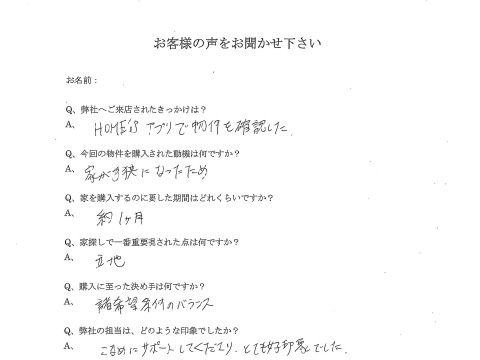 お客様の声をお聞かせ下さい
お名前：
Q、弊社へご来店されたきっかけは？
A、HOME'sアプリで物件を確認した.
Q、今回の物件を購入された動機は何ですか？
A、家が手狭になったため
Q、家を購入するのに要した期間はどれくらいですか？
A、約1ヶ月
Q、家探しで一番重要視された点は何ですか？
A、立地
Q、購入に至った決め手は何ですか？
A、諸希望条件のバランス
Q、弊社の担当は、どのような印象でしたか？
A、こまめにサポートしてくださり、とても好印象でした.